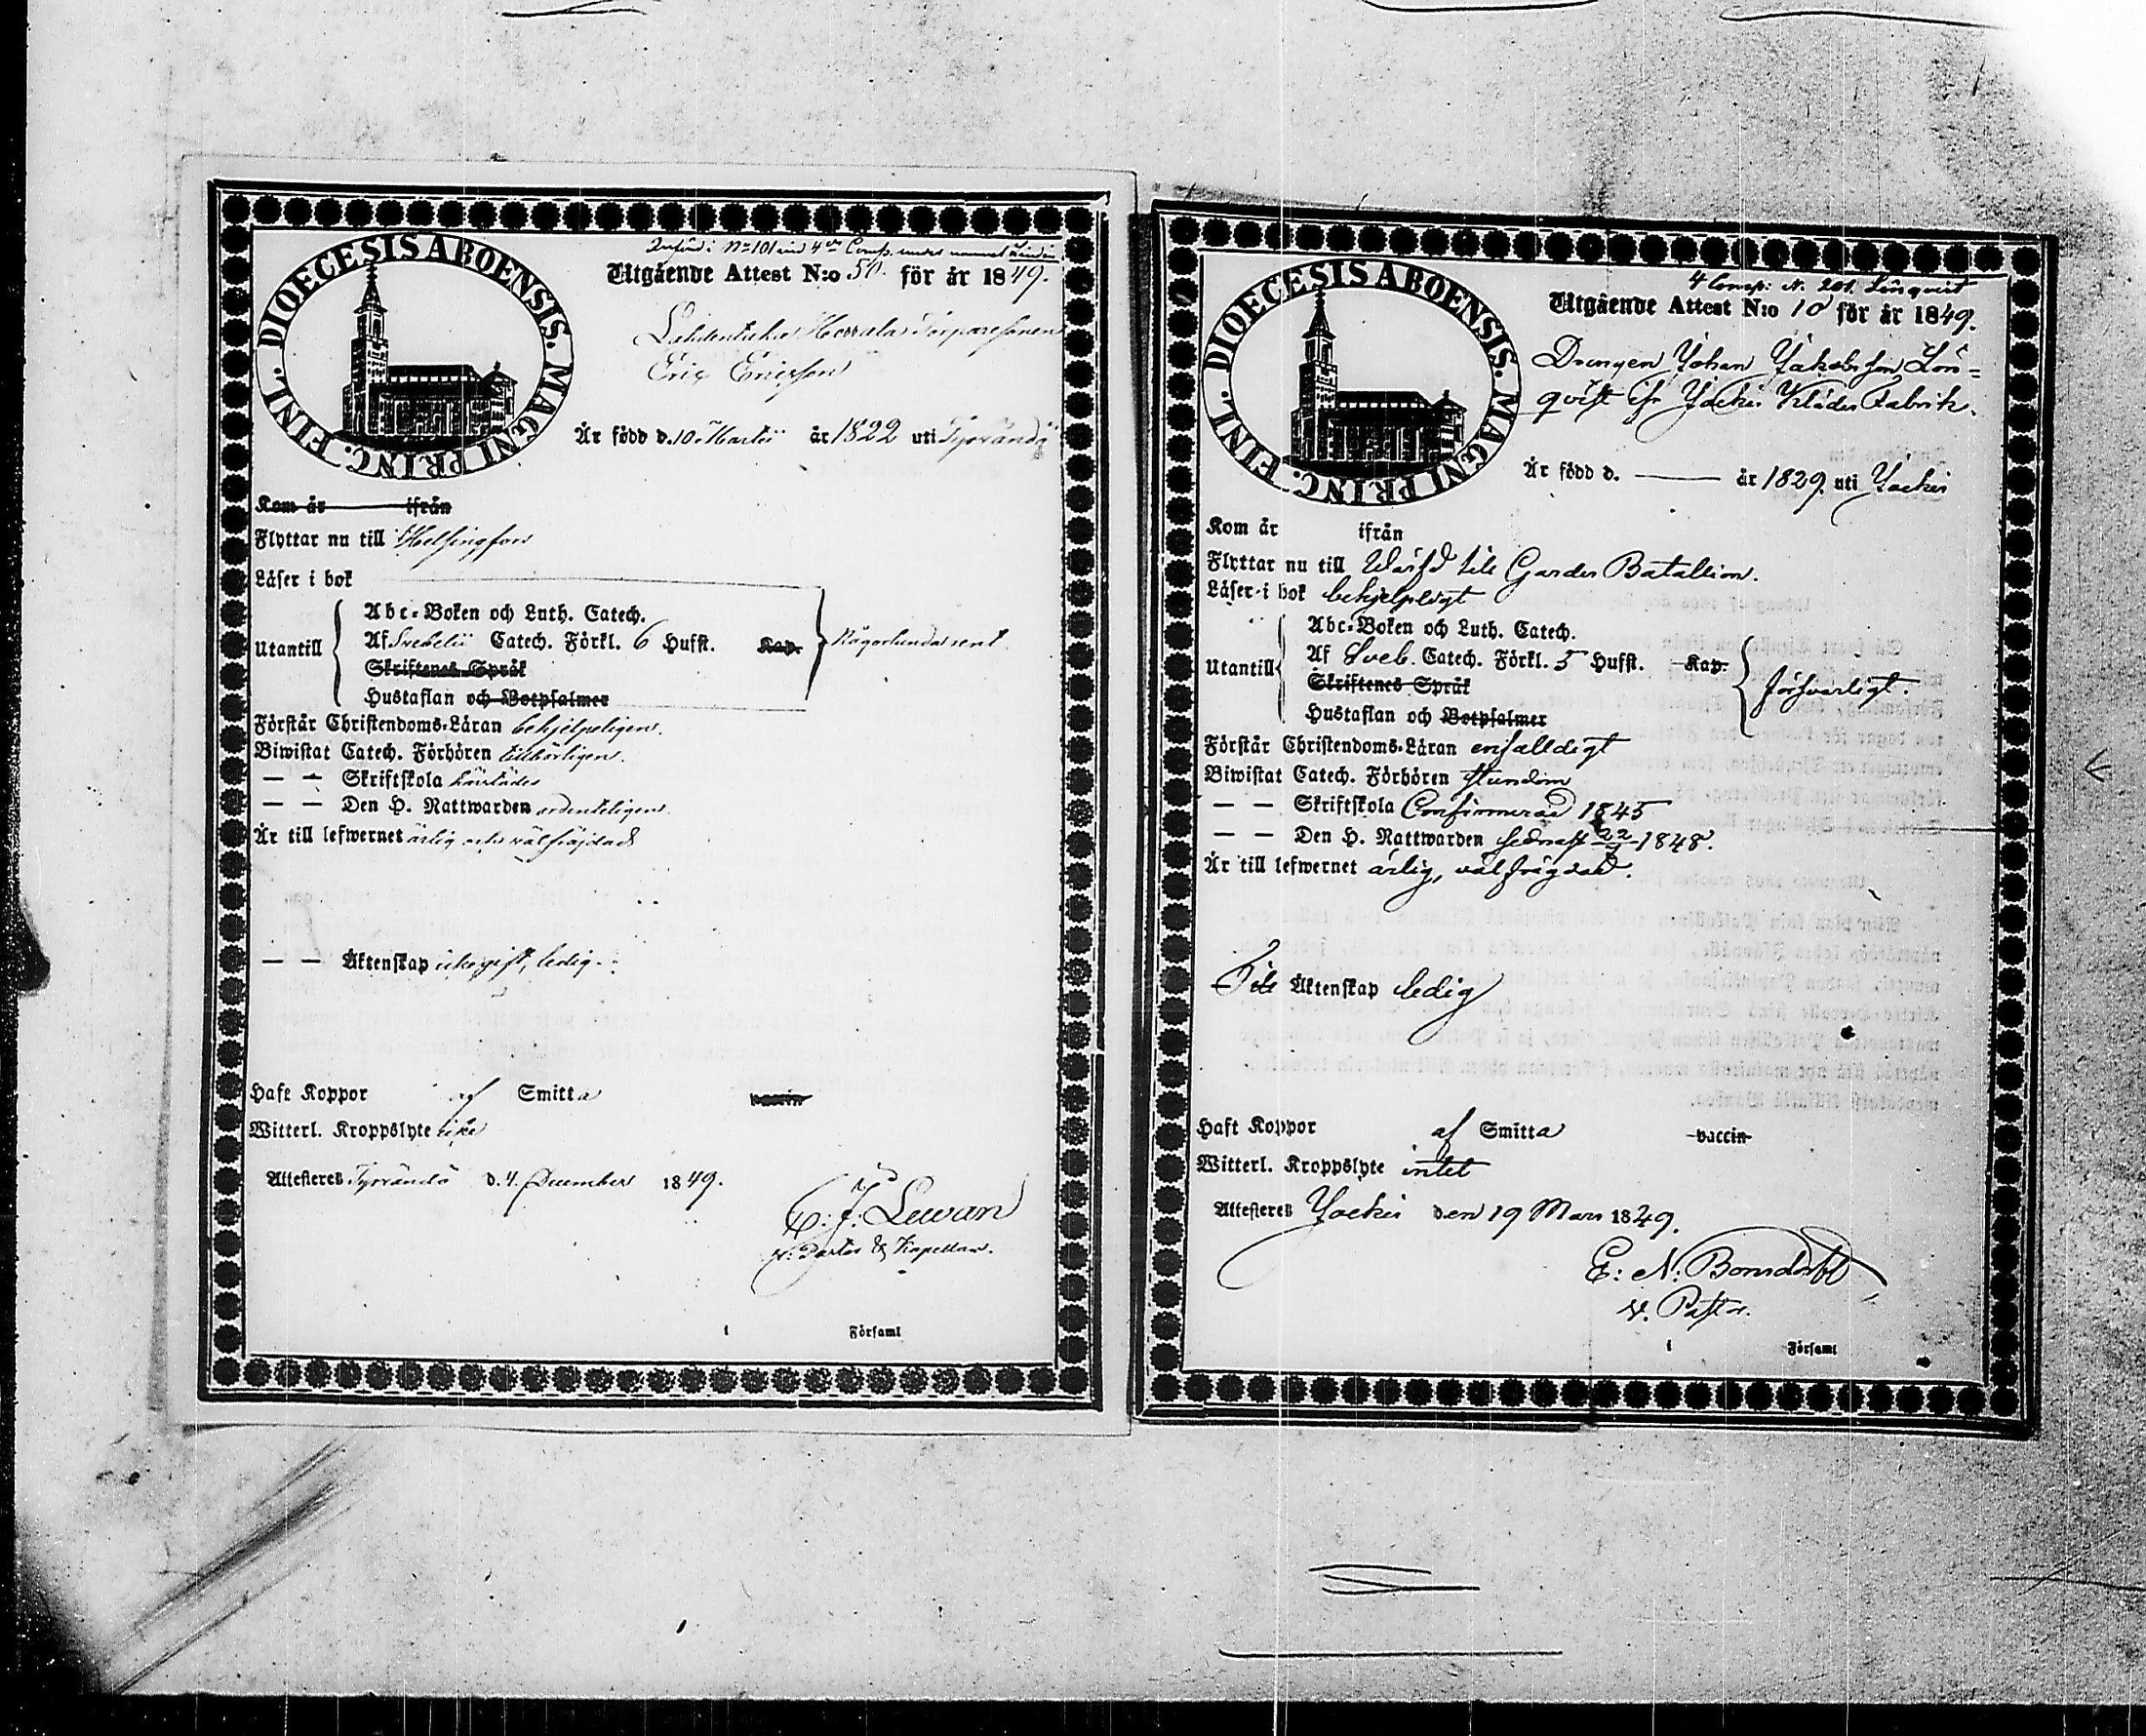 DIOECESIS ABOENSIS. MAGNI PRINC. FINL.
N:o 101 vid 4de Comp. under namnet Linden
Utgående Attest N:o 50. för år 1849.
Herrala Torparesonen
Eric Ericsson
Är född d. 10 Martii år 1822 uti Tyrvändö
Kom år ifrån
Flyttar nu till Helsingfors
Läser i bok
Utantill
Abc-Boken och Luth. Catech.
Af Svebelii Catech. Förkl. 6 Hufst. Kap.
Skriftenes Språk
Hustaflan och Botpsalmer
Någorlunda rent
Förstår Christendoms-Läran behjelpeligen.
Biwistat Catech. Förhören tillbörligen.
— — Skriftskola
— — Den H. Nattwarden ordenteligen.
Är till lefwernet ärlig och välfräjdad
— — Äktenskap icke gift, ledig.
Haft Koppor af Smitta vaccin
Witterl. Kroppslyte icke
Attesteres Tyrvändö d. 4 December 1849.
J. Lewan
v. Pastor & Kapellan.
i Församl
DIOECESIS ABOENSIS. MAGNI PRINC. FINL.
4 Comp: N. 201. Lönqvist
Utgående Attest N:o 10 för år 1849.
Drengen Johan Jakobsson Lön=
qvist ifr Jockis Klädes Fabrik.
Är född d. — år 1829. uti Jockis
Kom år ifrån
Flyttar nu till Wärfd till Gardes Batallion.
Läser i bok behjelpligt
Utantill
Abc-Boken och Luth. Catech.
Af Sveb. Catech. Förkl. 5 Hufst. Kap.
Skriftenes Språk
Hustaflan och Botpsalmer
försvarligt.
Förstår Christendoms-Läran enfalldigt
Biwistat Catech. Förhören stundom
— — Skriftskola Confirmerad 1845
— — Den H. Nattwarden sednast 1848.
Är till lefwernet ärlig, välfrägdad.
Till Äktenskap ledig
Haft Koppor af Smitta vaccin
Witterl. Kroppslyte intet
Attesteres Jockis den 19 Mars 1849.
E: N: Bonsdorff
v. Pastor.
i Församl